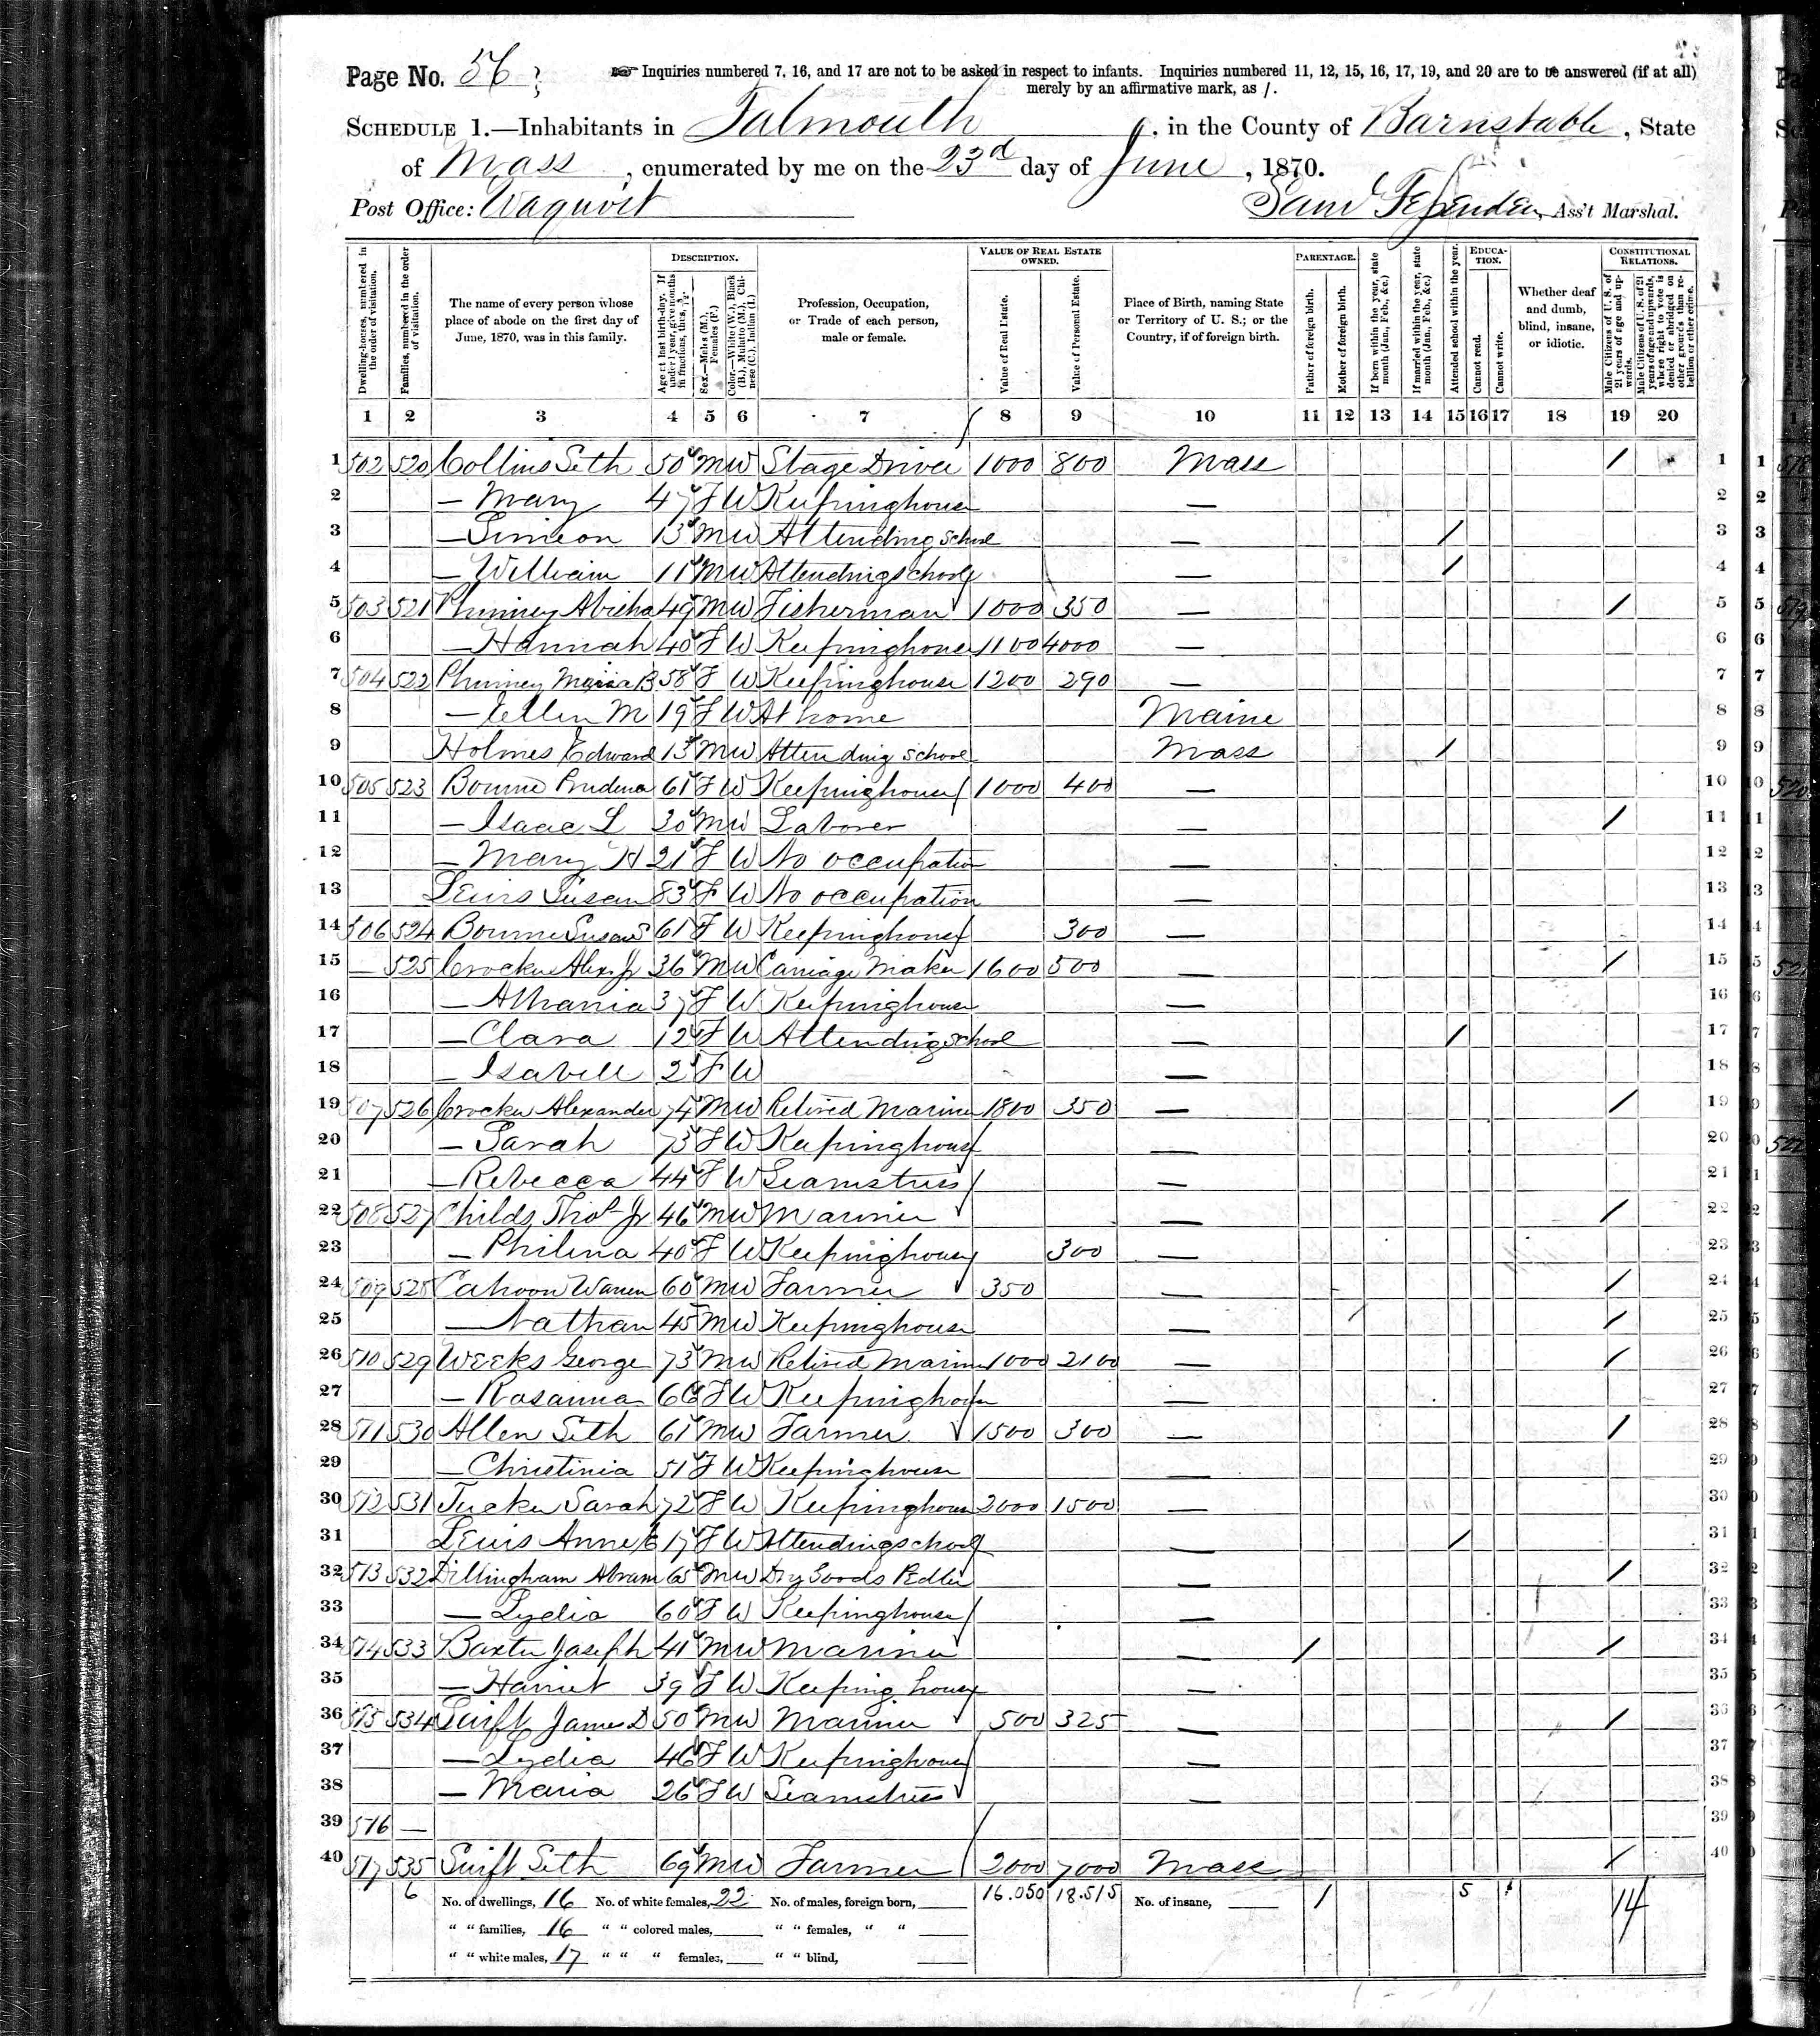 Page No. 56
Inquiries numbered 7, 16, and 17 are not to be asked in respect to infants. Inquiries numbered 11, 12, 15, 16, 17, 19, and 20 are to be answered (if at all)
merely by an affirmative mark, as /.
SCHEDULE 1.—Inhabitants in Falmouth, in the County of Barnstable, State
of Mass, enumerated by me on the 23d day of June, 1870.
Post Office: Waquoit Saml Fessenden, Ass't Marshal.
Dwelling-houses, numbered in the order of visitation.
Families, numbered in the order of visitation.
The name of every person whose place of abode on the first day of June, 1870, was in this family.
DESCRIPTION.
Age at last birth-day. If under 1 year, give months in fractions, thus, 3/12.
Sex.—Males (M.), Females (F.)
Color.—White (W.), Black (B.), Mulatto (M.), Chinese (C.), Indian (I.)
Profession, Occupation, or Trade of each person, male or female.
VALUE OF REAL ESTATE OWNED.
Value of Real Estate.
Value of Personal Estate.
Place of Birth, naming State or Territory of U. S.; or the Country, if of foreign birth.
PARENTAGE.
Father of foreign birth.
Mother of foreign birth.
If born within the year, state month (Jan., Feb., &c.)
If married within the year, state month (Jan., Feb., &c.)
Attended school within the year.
EDUCATION.
Cannot read.
Cannot write.
Whether deaf and dumb, blind, insane, or idiotic.
CONSTITUTIONAL RELATIONS.
Male Citizens of U. S. of 21 years of age and upwards.
Male Citizens of U. S. of 21 years of age and upwards, where right to vote is denied or abridged on other grounds than rebellion or other crime.
1 2 3 4 5 6 7 8 9 10 11 12 13 14 15 16 17 18 19 20
1 502 520 Collins Seth 50 M W Stage Driver 1000 800 Mass / 1
2 — Mary 47 F W Keepinghouse — 2
3 — Simeon 13 M W Attending School — / 3
4 — William 11 M W Attending school — / 4
5 503 521 Phinney Abisha 49 M W Fisherman 1000 350 — / 5
6 — Hannah 40 F W Keepinghouse 1100 4000 — 6
7 504 522 Phinney Maria B 58 F W Keepinghouse 1200 290 — 7
8 — Ellen M 19 F W At home Maine 8
9 Holmes Edward 13 M W Attending School Mass / 9
10 505 523 Bourne Prudence 61 F W Keepinghouse 1000 400 — 10
11 — Isaac L 30 M W Laborer — / 11
12 — Mary H 21 F W No occupation — 12
13 Lewis Susan 83 F W No occupation — 13
14 506 524 Bourne Susan S 61 F W Keepinghouse 300 — 14
15 — 525 Crocker Alex Jr 36 M W Carriage Maker 1600 500 — / 15
16 — Athania 37 F W Keepinghouse — 16
17 — Clara 12 F W Attending school — / 17
18 — Isabell 2 F W — 18
19 507 526 Crocker Alexander 74 M W Retired Mariner 1800 350 — / 19
20 — Sarah 73 F W Keepinghouse — 20
21 — Rebecca 44 F W Seamstress — 21
22 508 527 Childs Thos Jr 46 M W Mariner — / 22
23 — Philena 40 F W Keepinghouse 300 — 23
24 509 528 Cahoon Warren 60 M W Farmer 350 — / 24
25 — Nathan 45 M W Keepinghouse — / 25
26 510 529 Weeks George 73 M W Retired Mariner 1000 2100 — / 26
27 — Rosanna 66 F W Keepinghouse — 27
28 511 530 Allen Seth 61 M W Farmer 1500 300 — / 28
29 — Christinia 51 F W Keepinghouse — 29
30 512 531 Tucker Sarah 72 F W Keepinghouse 2000 1500 — 30
31 Lewis Anne E 17 F W Attending school — / 31
32 513 532 Dillingham Abram 65 M W Dry Goods Pedler — / 32
33 — Lydia 60 F W Keepinghouse — 33
34 514 533 Baxter Joseph 41 M W Mariner — / / 34
35 — Harriet 39 F W Keeping house — 35
36 515 534 Swift James D 50 M W Mariner 500 325 — / 36
37 — Lydia 46 F W Keepinghouse — 37
38 — Maria 26 F W Seamstress — 38
39 516 — 39
40 517 535 Swift Seth 69 M W Farmer 2000 7000 Mass / 40
6 No. of dwellings, 16 No. of white females, 22 No. of males, foreign born, 16.050 18.515 No. of insane, 1 5 14
" " families, 16 " " colored males, " " females, " "
" " white males, 17 " " " females, " " blind,